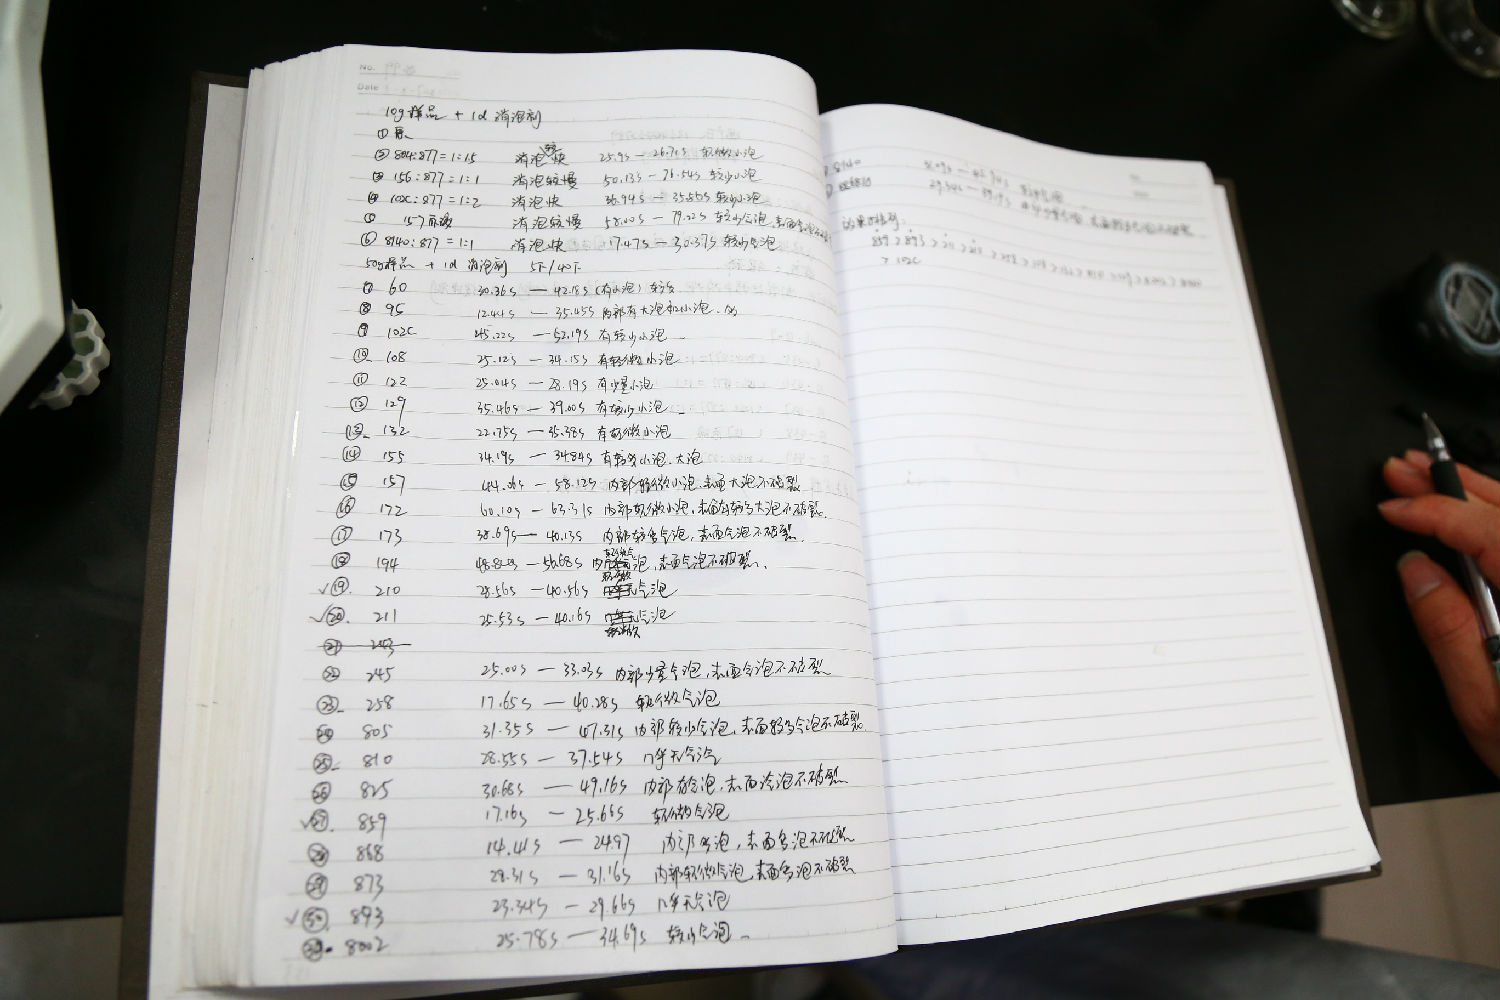 No.
Date
10g样品 + 1d 消泡剂
①
② 804:877=1:1.5 消泡较快 25.9s — 26.71s 轻微小泡
③ 156:877=1:1 消泡较慢 50.13s — 76.54s 较少小泡
④ 102C:877=1:2 消泡快 36.94s — 35.56s 较少小泡
⑤ 157 消泡较慢 58.00s — 79.22s 较少气泡,表面气泡不破
⑥ 8140:877=1:1 消泡快 17.47s — 30.37s 较少气泡
50g样品 + 1d 消泡剂 5下/40下
⑦ 60 30.36s — 42.18s (有小泡) 较多
⑧ 95 12.44s — 35.45s 内部有大泡和小泡.
⑨ 102C 45.22s — 52.19s 有较少小泡
⑩ 108 25.12s — 34.15s 有轻微小泡
⑪ 122 25.04s — 28.19s 有少量小泡
⑫ 129 35.46s — 39.00s 有较少小泡
⑬ 132 22.75s — 35.38s 有轻微小泡
⑭ 155 34.19s — 34.84s 有较多小泡.大泡
⑮ 157 44.06s — 58.12s 内部轻微小泡.表面大泡不破裂
⑯ 172 60.10s — 63.31s 内部轻微小泡.表面有较多大泡不破裂.
⑰ 173 38.69s — 40.13s 内部较多气泡,表面气泡不破裂.
⑱ 194 48.84s — 56.68s 内部 气泡,表面气泡不破裂.
✓⑲. 210 28.56s — 40.56s 轻微 气泡
✓⑳. 211 25.53s — 40.16s 气泡 轻微
㉑ 243
㉒ 245 25.00s — 33.03s 内部少量气泡,表面气泡不破裂
㉓ 258 17.65s — 40.28s 轻微气泡
㉔ 805 31.35s — 47.31s 内部较少气泡,表面较多气泡不破裂.
㉕ 810 28.55s — 37.54s 几乎无气泡
㉖ 825 30.68s — 49.16s 内部有气泡,表面气泡不破裂
✓㉗. 859 17.16s — 25.66s 轻微气泡
㉘ 868 14.41s — 24.97 内部多泡,表面多泡不破裂
㉙ 873 28.31s — 31.16s 内部轻微气泡,表面多泡不破裂
✓㉚. 893 23.34s — 29.66s 几乎无气泡
8002 25.78s — 34.69s 较少气泡
8140
效果排列:
859 > 893 > 211 > 210 > 258 >
> 102C